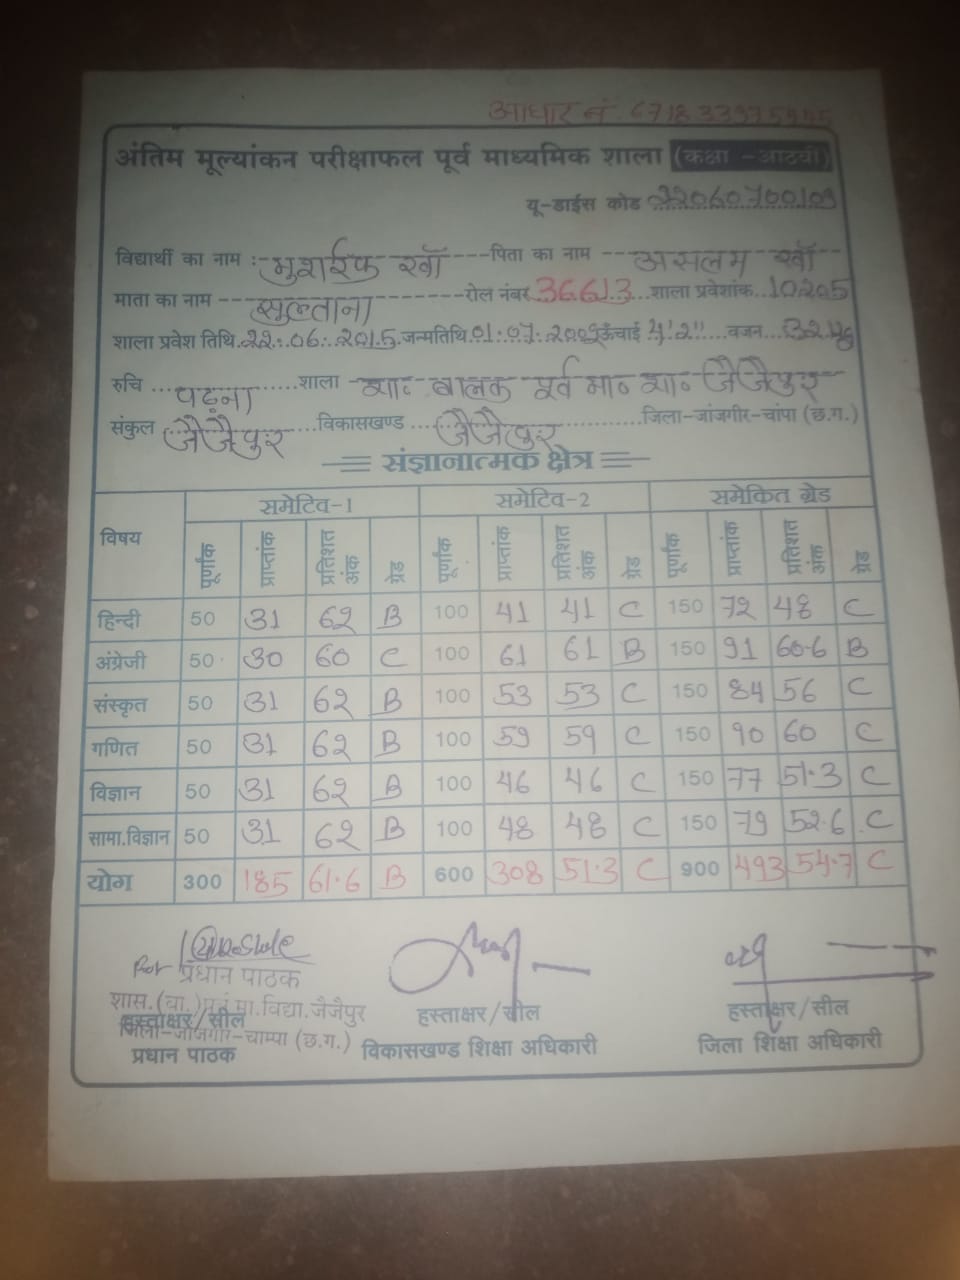 आधार नं.
अंतिम मूल्यांकन परीक्षाफल पूर्व माध्यमिक शाला (कक्षा - आठवी)
यू-डाईस कोड 22060700109
विद्यार्थी का नाम : मुशर्रफ खाँ पिता का नाम असलम खाँ
माता का नाम सुल्ताना रोल नंबर 36613 शाला प्रवेशांक 10205
शाला प्रवेश तिथि 22.06.2015 जन्मतिथि ऊँचाई 4'2" वजन
रुचि पढ़ना शाला शा. बालक पूर्व मा० शा० जैजैपुर
संकुल जैजैपुर विकासखण्ड जैजैपुर जिला-जांजगीर-चांपा (छ.ग.)
संज्ञानात्मक क्षेत्र
विषय समेटिव-1 समेटिव-2 समेकित ग्रेड
पूर्णांक प्राप्तांक प्रतिशत अंक ग्रेड पूर्णांक प्राप्तांक प्रतिशत अंक ग्रेड पूर्णांक प्राप्तांक प्रतिशत अंक ग्रेड
हिन्दी 50 31 62 B 100 41 41 C 150 72 48 C
अंग्रेजी 50 30 60 C 100 61 61 B 150 91 60.6 B
संस्कृत 50 31 62 B 100 53 53 C 150 84 56 C
गणित 50 31 62 B 100 59 59 C 150 90 60 C
विज्ञान 50 31 62 B 100 46 46 C 150 77 51.3 C
सामा.विज्ञान 50 31 62 B 100 48 48 C 150 79 52.6 C
योग 300 185 61.6 B 600 308 51.3 C 900 493 54.7 C
प्रधान पाठक
शास.(बा.)पूर्व.मा.विद्या.जैजैपुर
जिला-जांजगीर-चाम्पा (छ.ग.)
हस्ताक्षर/सील हस्ताक्षर/सील हस्ताक्षर/सील
प्रधान पाठक विकासखण्ड शिक्षा अधिकारी जिला शिक्षा अधिकारी